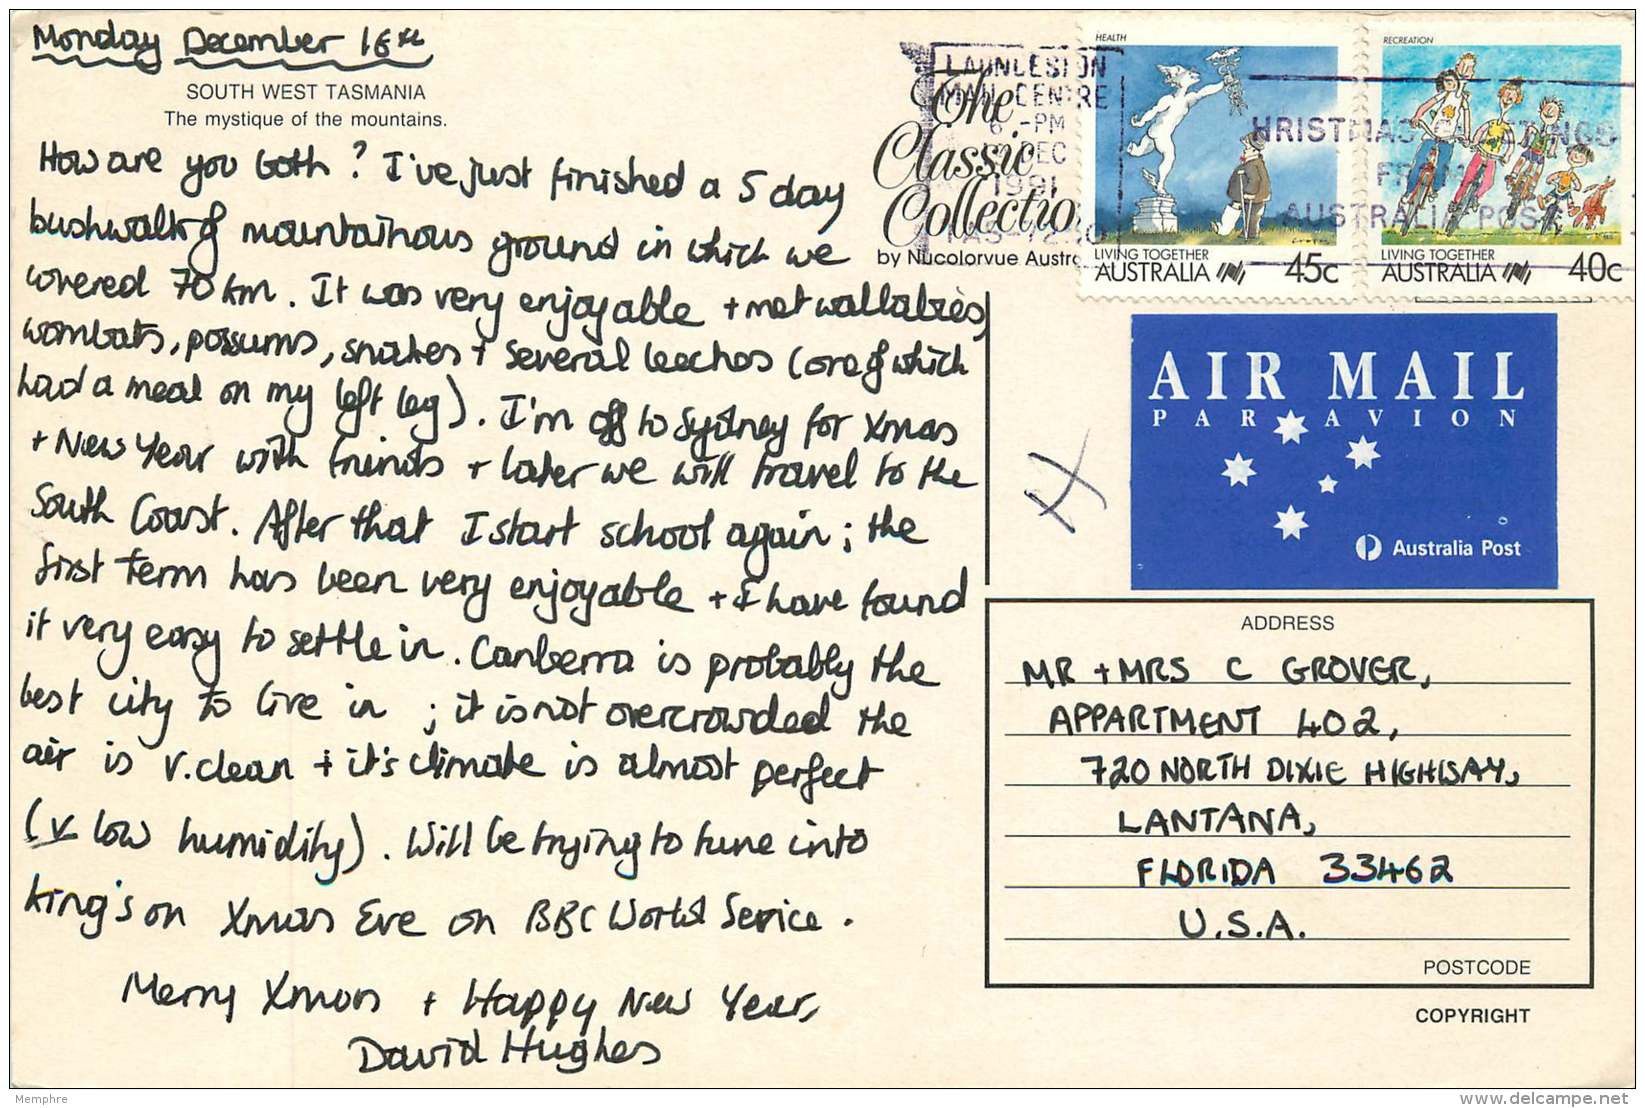 Monday December 16th
SOUTH WEST TASMANIA
The mystique of the mountains.
How are you both? I've just finished a 5 day
bushwalk of mountainous ground in which we
covered 70 km. It was very enjoyable + met wallabies,
wombats, possums, snakes + several leeches (one of which
had a meal on my left leg). I'm off to Sydney for Xmas
+ New Year with friends + later we will travel to the
South Coast. After that I start school again; the
first term has been very enjoyable + I have found
it very easy to settle in. Canberra is probably the
best city to live in; it is not overcrowded the
air is v.clean + it's climate is almost perfect
(v low humidity). Will be trying to tune into
king's on Xmas Eve on BBC World Service.
Merry Xmas + Happy New Year,
David Hughes
The
Classic
Collection
by Nucolorvue Austra
LAUNCESTON
MAIL CENTRE
6 -PM
DEC
1991
TAS-7250
HEALTH
LIVING TOGETHER
AUSTRALIA 45c
RECREATION
LIVING TOGETHER
AUSTRALIA 40c
HRISTMAS GREETINGS
FROM
AUSTRALIA POST
AIR MAIL
PAR AVION
Australia Post
ADDRESS
MR + MRS C GROVER,
APPARTMENT 402,
720 NORTH DIXIE HIGHWAY,
LANTANA,
FLORIDA 33462
U.S.A.
POSTCODE
COPYRIGHT
Memphre
delcampe.net